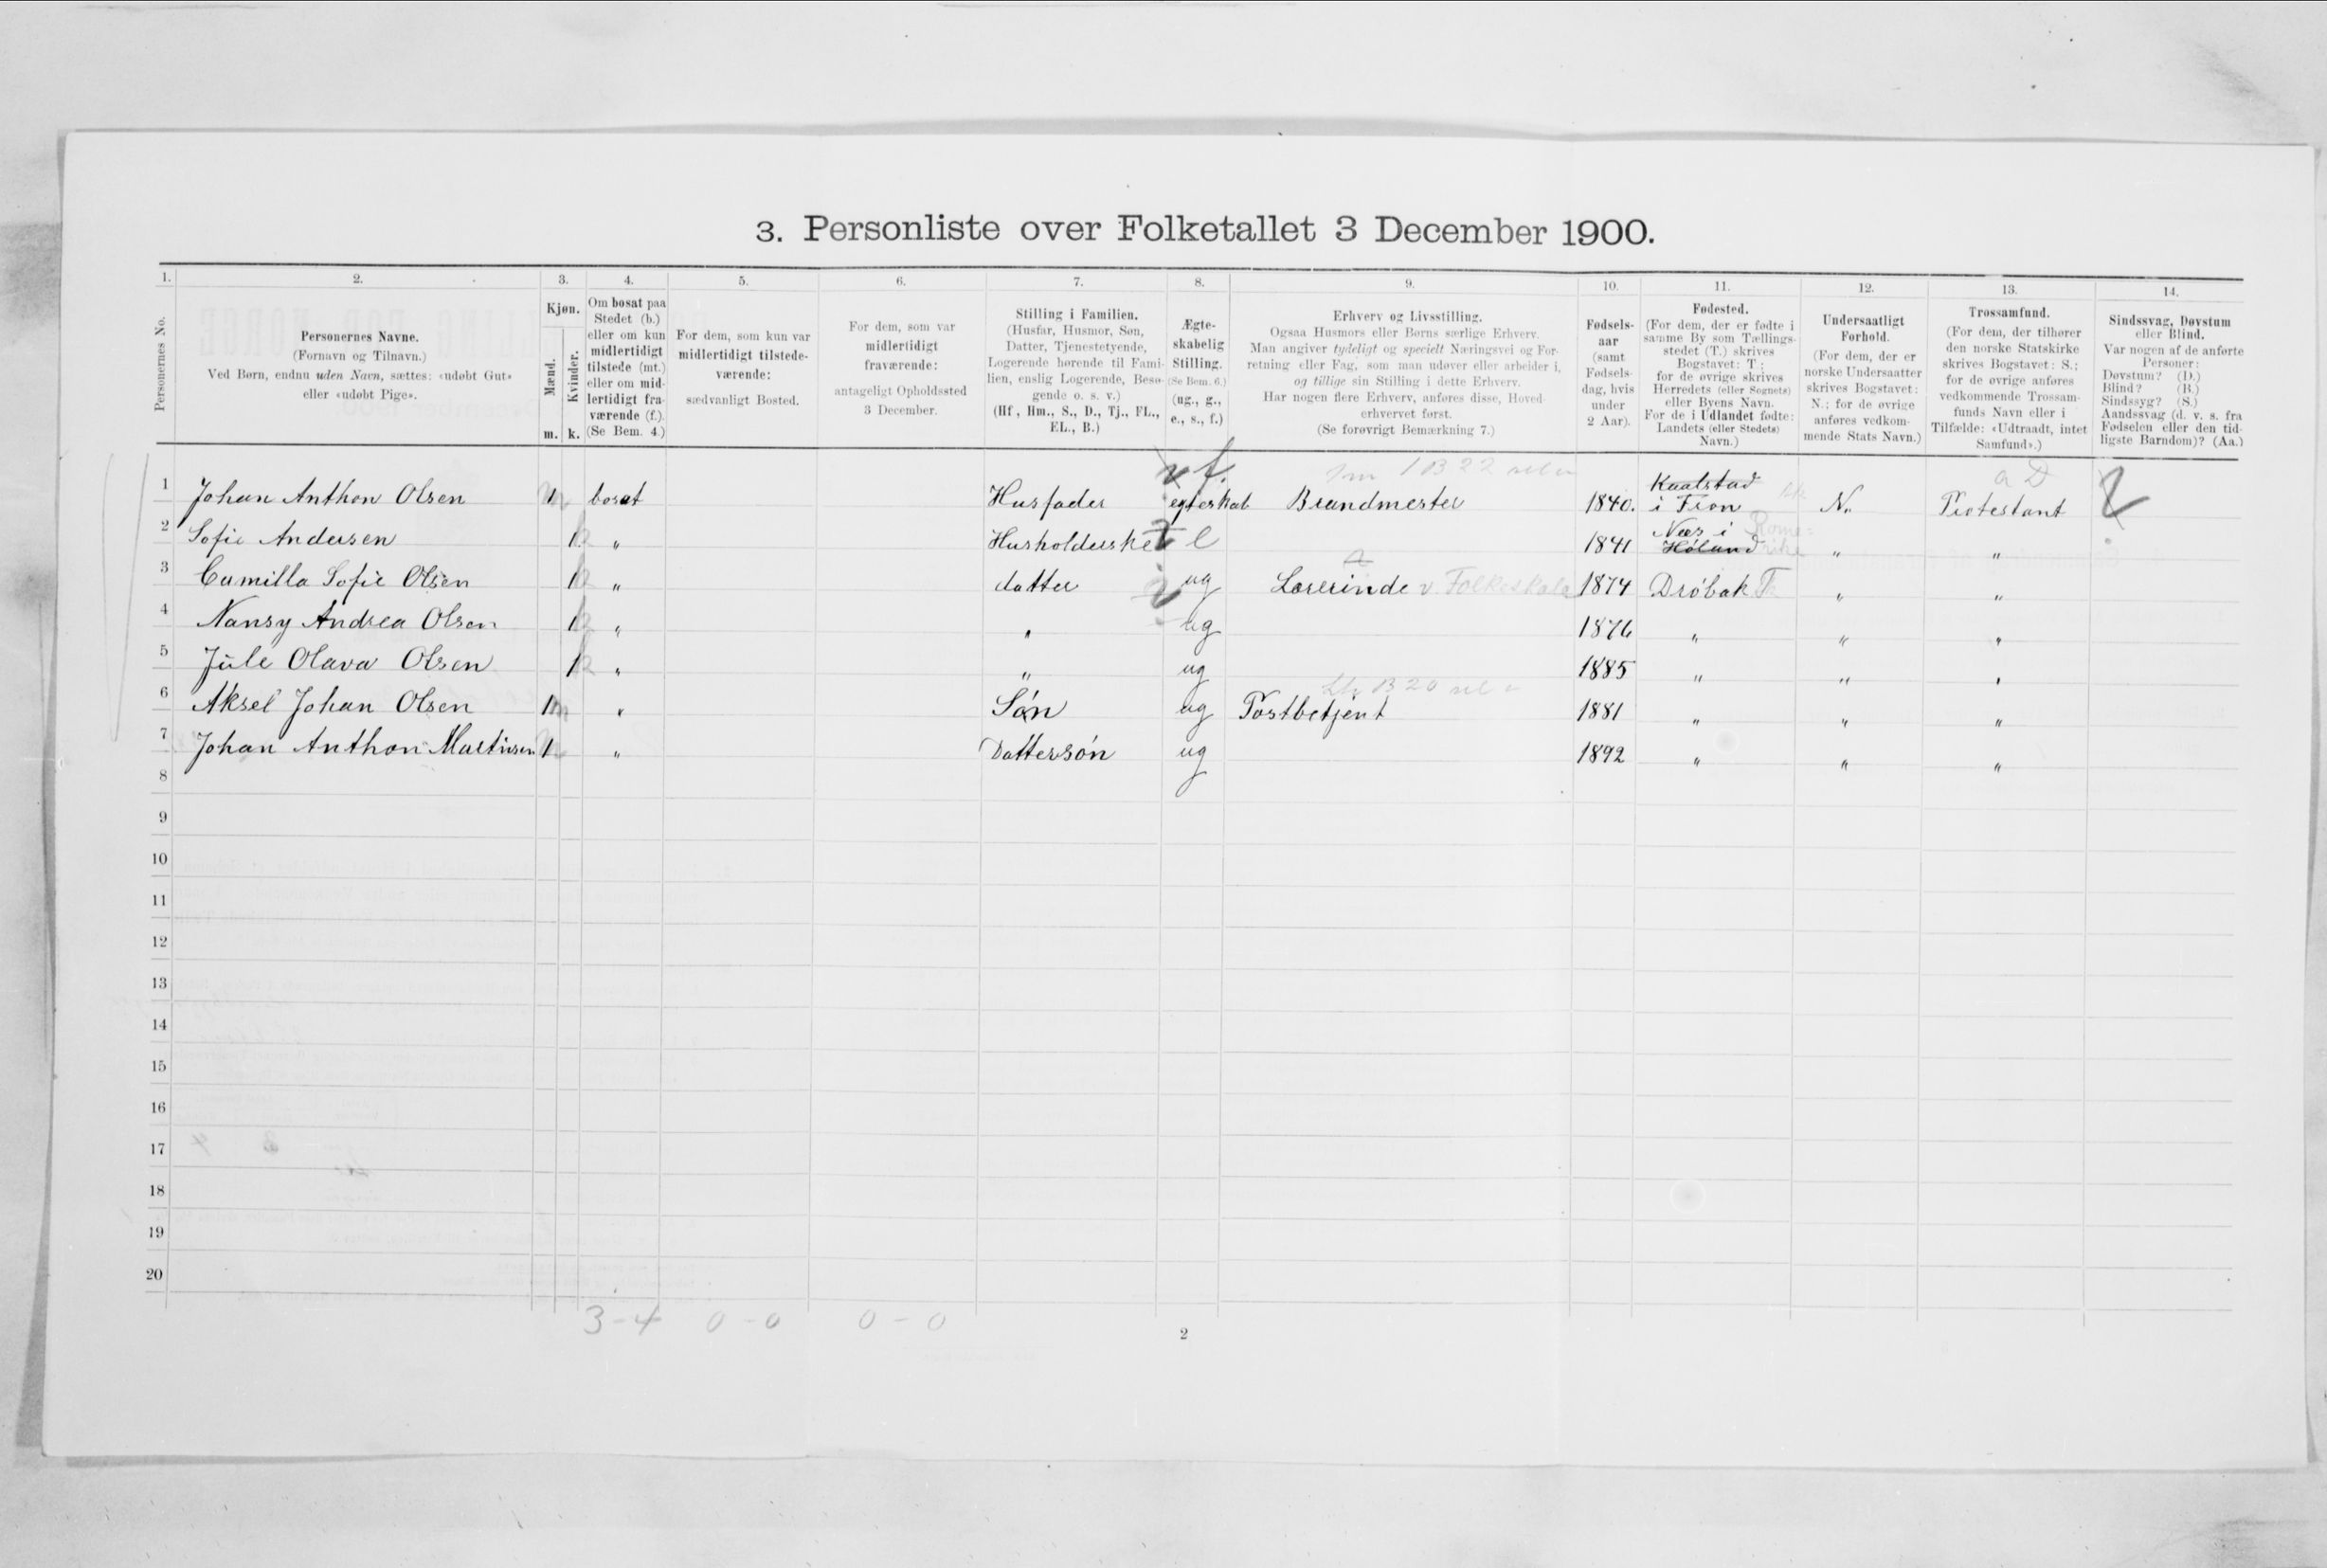 3. Personliste over Folketallet 3 December 1900.
1. 2. 3. 4. 5. 6. 7. 8. 9. 10. 11. 12. 13. 14.
Personernes No.
Personernes Navne.
(Fornavn og Tilnavn.)
Ved Børn, endnu uden Navn, sættes: «udøbt Gut»
eller «udøbt Pige».
Kjøn.
Mænd.
Kvinder.
m. k.
Om bosat paa
Stedet (b.)
eller om kun
midlertidigt
tilstede (mt.)
eller om mid-
lertidigt fra-
værende (f.).
(Se Bem. 4.)
For dem, som kun var
midlertidigt tilstede-
værende:
sædvanligt Bosted.
For dem, som var
midlertidigt
fraværende:
antageligt Opholdssted
3 December.
Stilling i Familien.
(Husfar, Husmor, Søn,
Datter, Tjenestetyende,
Logerende hørende til Fami-
lien, enslig Logerende, Besø-
gende o. s. v.)
(Hf, Hm., S., D., Tj., FL.,
EL., B.)
Ægte-
skabelig
Stilling.
(Se Bem. 6.)
(ug., g.,
e., s., f.)
Erhverv og Livsstilling.
Ogsaa Husmors eller Børns særlige Erhverv.
Man angiver tydeligt og specielt Næringsvei og For-
retning eller Fag, som man udøver eller arbeider i,
og tillige sin Stilling i dette Erhverv.
Har nogen flere Erhverv, anføres disse, Hoved-
erhvervet først.
(Se forøvrigt Bemærkning 7.)
Fødsels-
aar
(samt
Fødsels-
dag, hvis
under
2 Aar).
Fødested.
(For dem, der er fødte i
samme By som Tællings-
stedet (T.) skrives
Bogstavet: T;
for de øvrige skrives
Herredets (eller Sognets)
eller Byens Navn.
For de i Udlandet fødte:
Landets (eller Stedets)
Navn.)
Undersaatligt
Forhold.
(For dem, der er
norske Undersaatter
skrives Bogstavet:
N.; for de øvrige
anføres vedkom-
mende Stats Navn.)
Trossamfund.
(For dem, der tilhører
den norske Statskirke
skrives Bogstavet: S.;
for de øvrige anføres
vedkommende Trossam-
funds Navn eller i
Tilfælde: «Udtraadt, intet
Samfund».)
Sindssvag, Døvstum
eller Blind.
Var nogen af de anførte
Personer:
Døvstum? (D.)
Blind? (B.)
Sindssyg? (S.)
Aandssvag (d. v. s. fra
Fødselen eller den tid-
ligste Barndom)? (Aa.)
1 Johan Anthon Olsen 1 bosat Husfader f. egteskab Brandmester 1840. i Fron N. Protestant
2 Sofie Andersen 1 " Husholderske e 1841 Næs i Høland Romerike " "
3 Camilla Sofie Olsen 1 " datter ug Lærerinde v. Folkeskole 1874 Drøbak " "
4 Nansy Andrea Olsen 1 " " ug 1876 " " "
5 Jule Olava Olsen 1 " " ug 1885 " " "
6 Aksel Johan Olsen 1 " Søn ug Postbetjent 1881 " " "
7 Johan Anthon Martinsen 1 " Dattersøn ug 1892 " " "
8
9
10
11
12
13
14
15
16
17
18
19
20
3-4 0-0 0-0
2